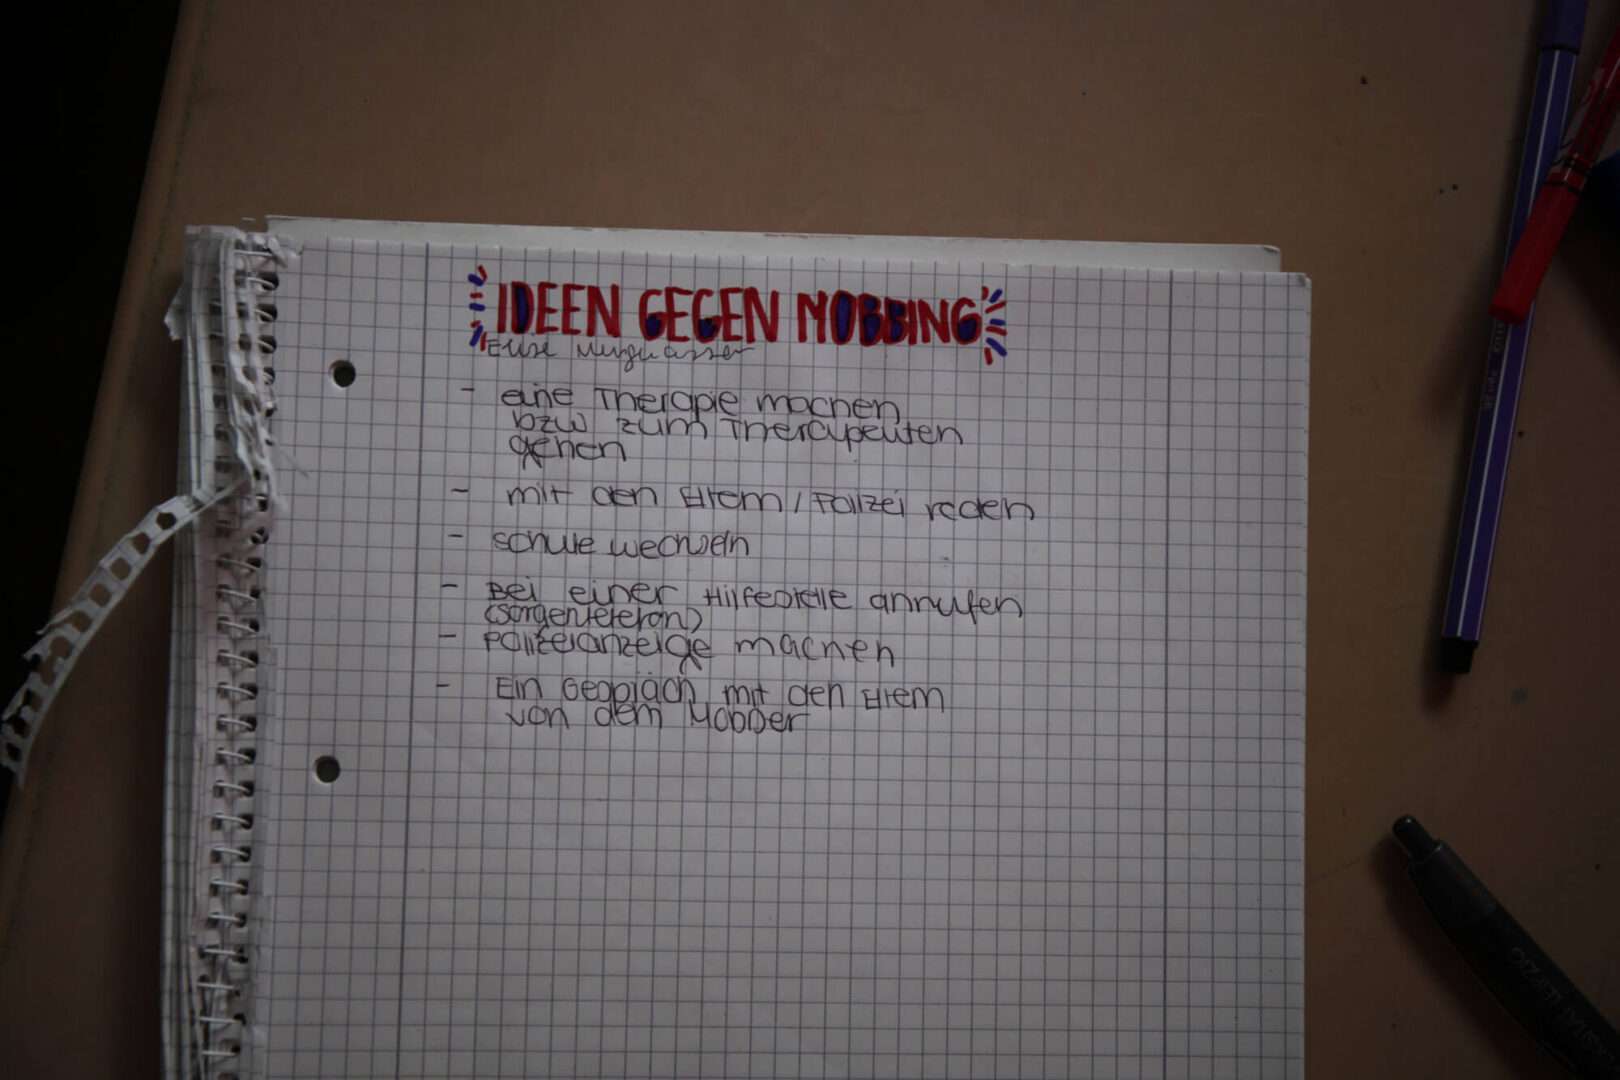 IDEEN GEGEN MOBBING
- eine Therapie machen
bzw zum Therapeuten
gehen
- mit den Eltern / Polizei reden
- schule wechseln
- Bei einer Hilfestelle anrufen
(sorgentelefon)
- Polizeianzeige machen
- Ein Gespräch mit den Eltern
von dem Mobber